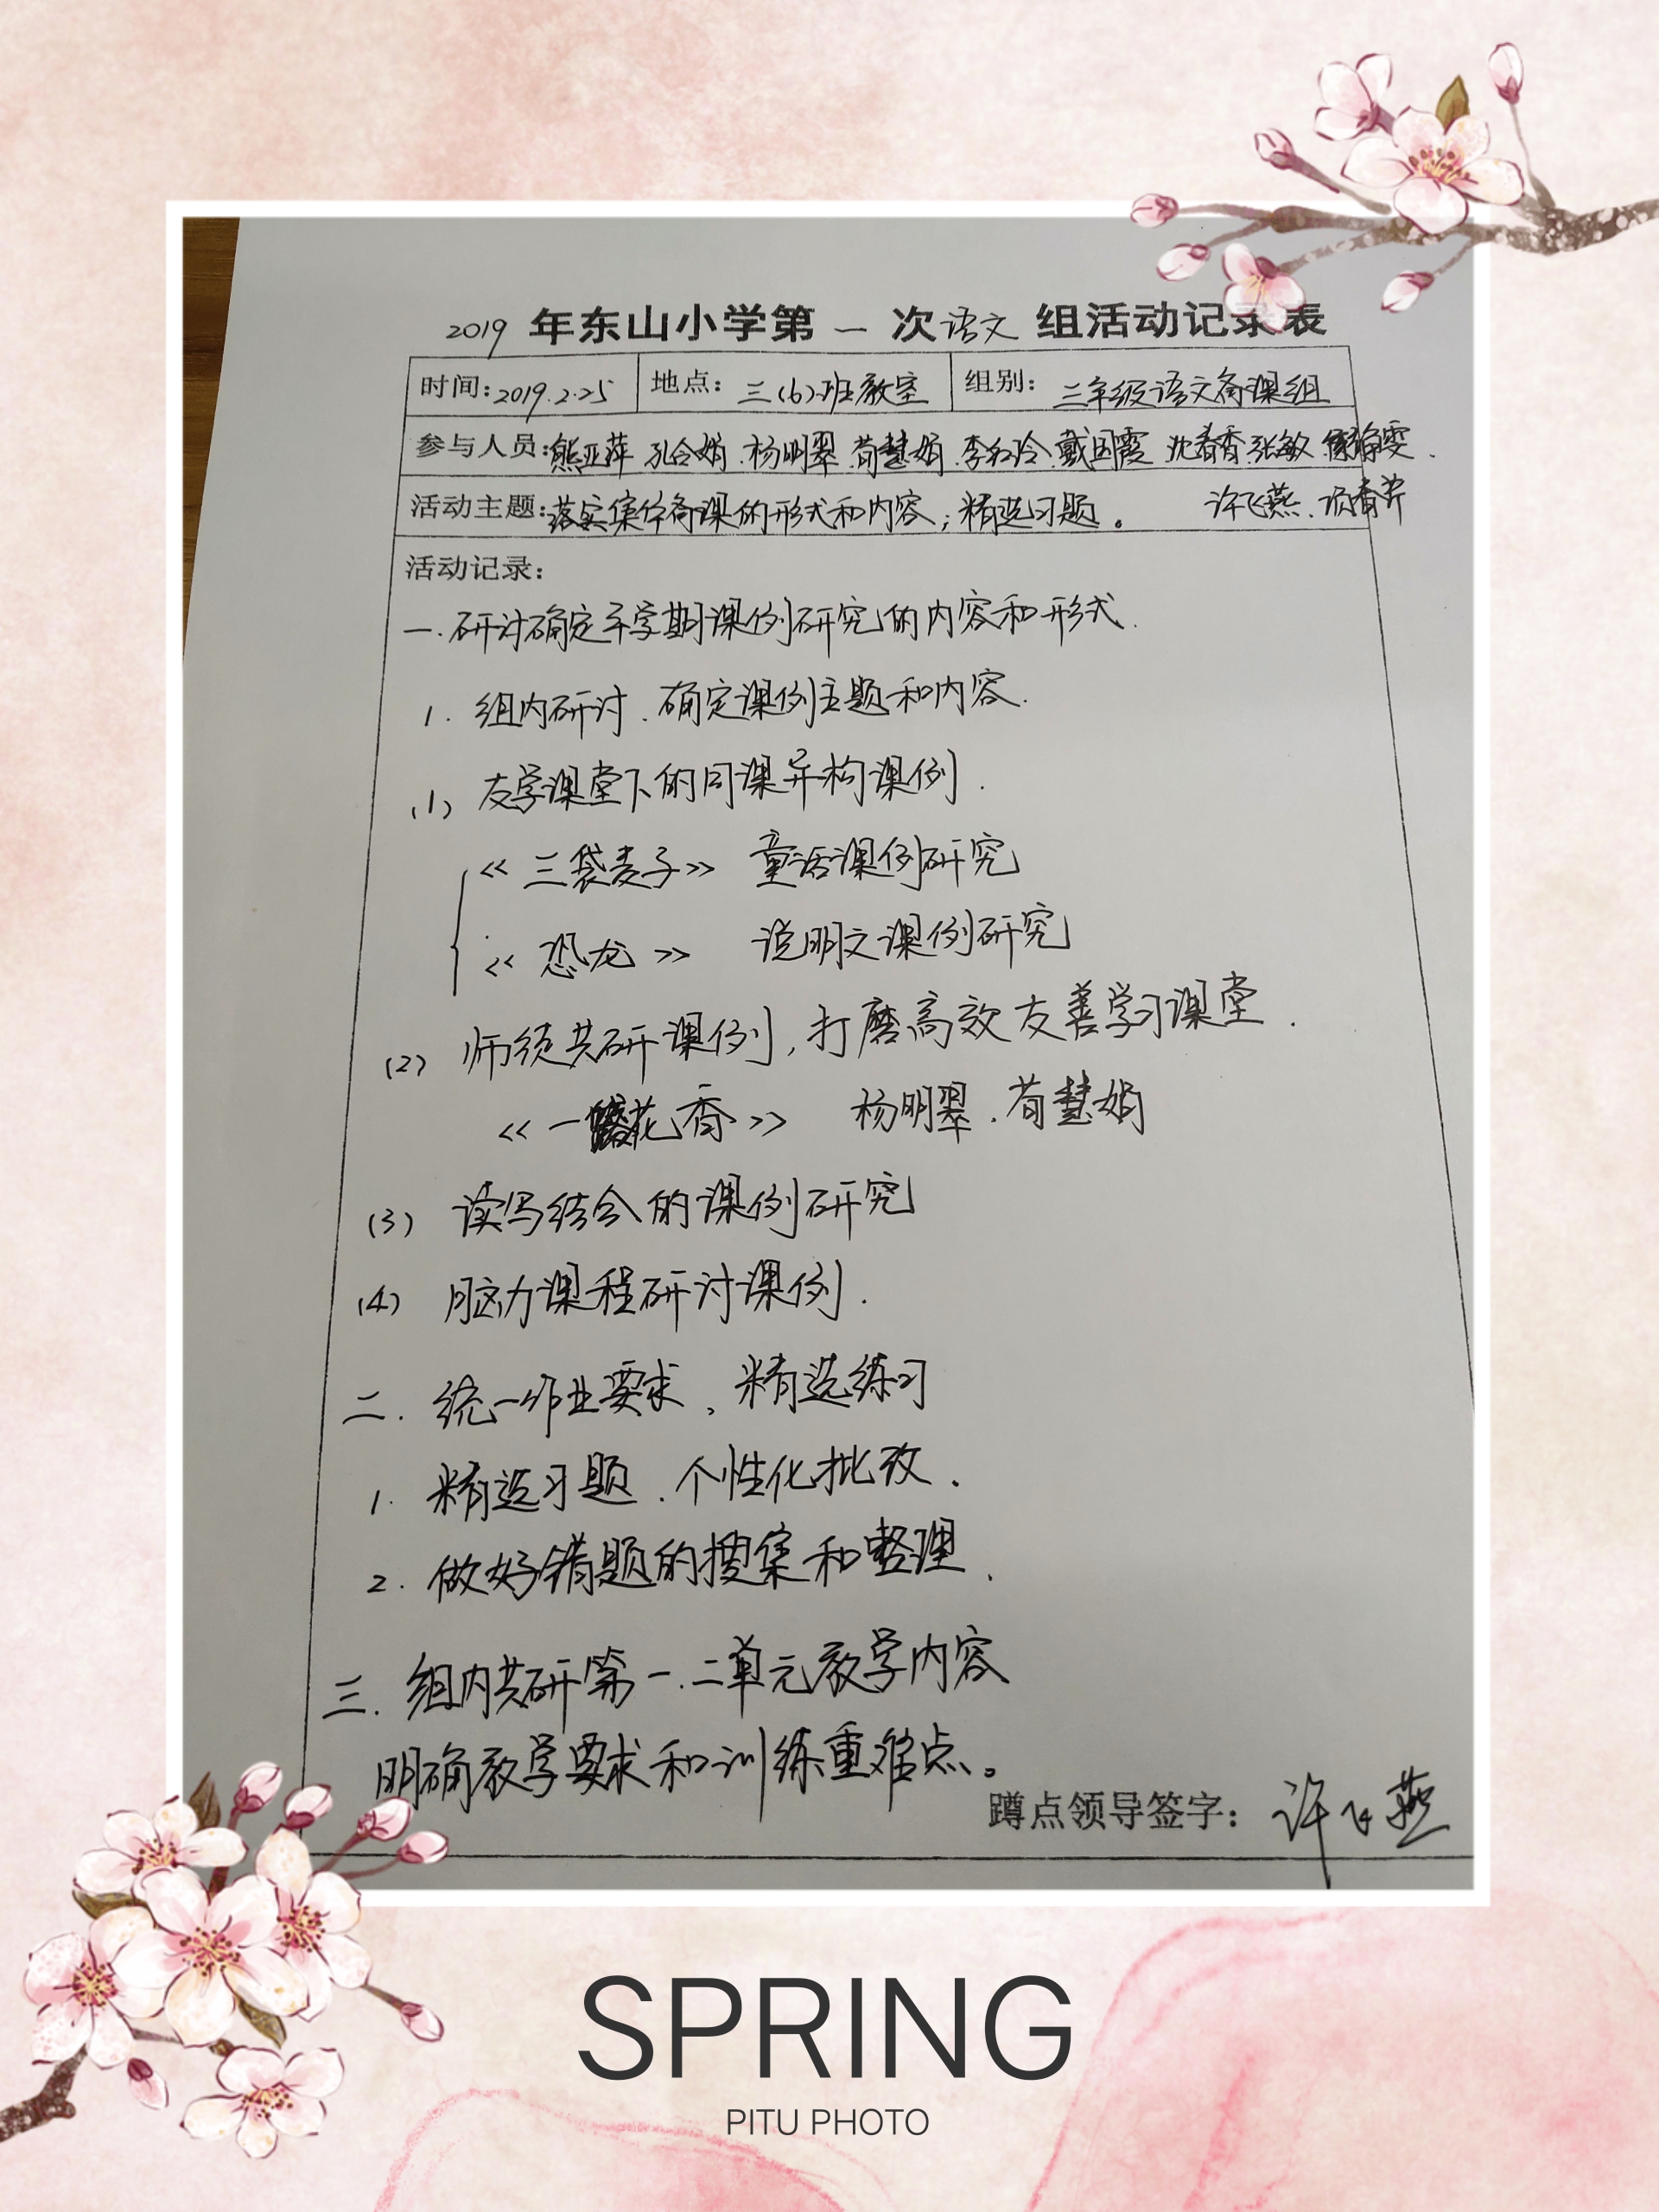 2019 年东山小学第 一 次 语文 组活动记录表
时间: 2019.2.25 地点: 三(6)班教室 组别: 三年级语文备课组
参与人员: 熊亚萍 孔令娟 杨明翠 荀慧娟 李红玲 戴国霞 沈春香 张敏
活动主题: 落实集体备课的形式和内容;精选习题。 许飞燕
活动记录:
一.研讨确定本学期课例研究的内容和形式.
1. 组内研讨、确定课例主题和内容.
(1) 友学课堂下的同课异构课例.
《三袋麦子》 童话课例研究
《恐龙》 说明文课例研究
(2) 师徒共研课例,打磨高效友善学习课堂.
《一路花香》 杨明翠、荀慧娟
(3) 读写结合的课例研究
(4) 脑力课程研讨课例.
二. 统一作业要求、精选练习
1. 精选习题、个性化批改.
2. 做好错题的搜集和整理.
三. 组内共研第一、二单元教学内容
明确教学要求和训练重难点。
蹲点领导签字: 许飞燕
SPRING
PITU PHOTO